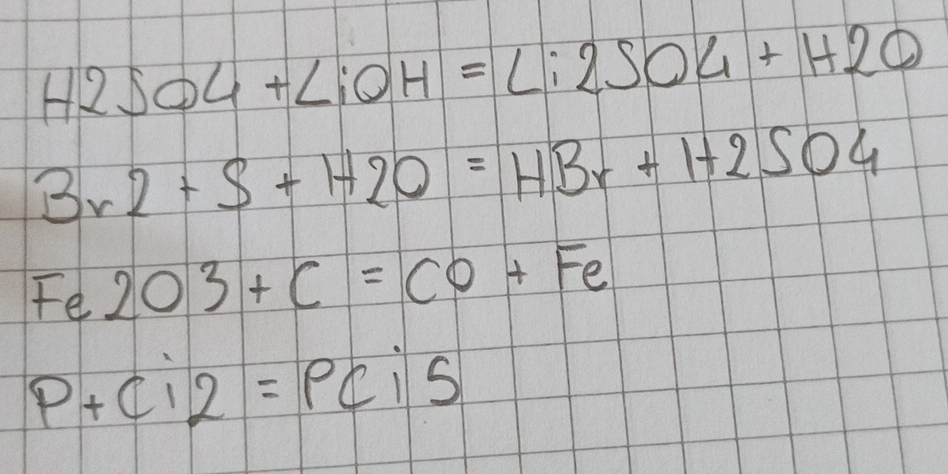 H2SO4 + LiOH = Li2SO4 + H2O
Br2 + S + H2O = HBr + H2SO4
Fe2O3 + C = CO + Fe
P + Ci2 = PCi5